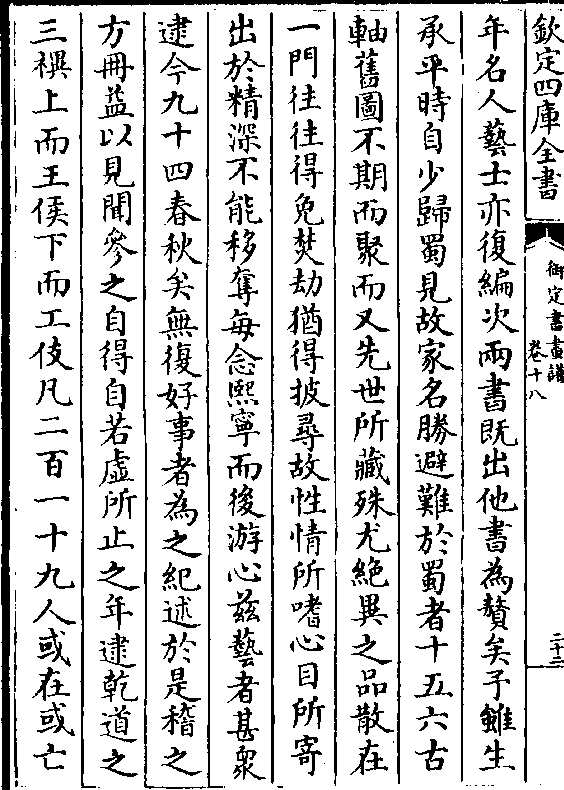 欽定四庫全書
御定書畫譜
卷十八
二十三
年名人藝士亦復編次兩書既出他書為贅矣予雖生
承平時自少歸蜀見故家名勝避難於蜀者十五六古
軸舊圖不期而聚而又先世所藏殊尤絶異之品散在
一門往往得免焚劫猶得披尋故性情所嗜心目所寄
出於精深不能移奪每念熙寧而後游心兹藝者甚衆
逮今九十四春秋矣無復好事者為之紀述於是稽之
方冊益以見聞參之自得自若虛所止之年逮乾道之
三禩上而王侯下而工伎凡二百一十九人或在或亡